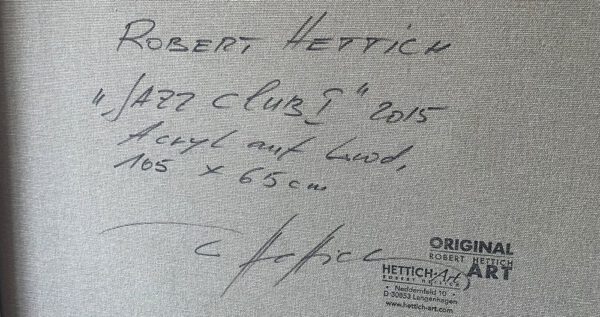 ROBERT HETTICH
"JAZZ CLUB I" 2015
Acryl auf Lwd,
105 x 65 cm
Hettich
ORIGINAL
ROBERT HETTICH
ART
HETTICH-Art
ROBERT HETTICH
Neddernfeld 10
D-30853 Langenhagen
www.hettich-art.com